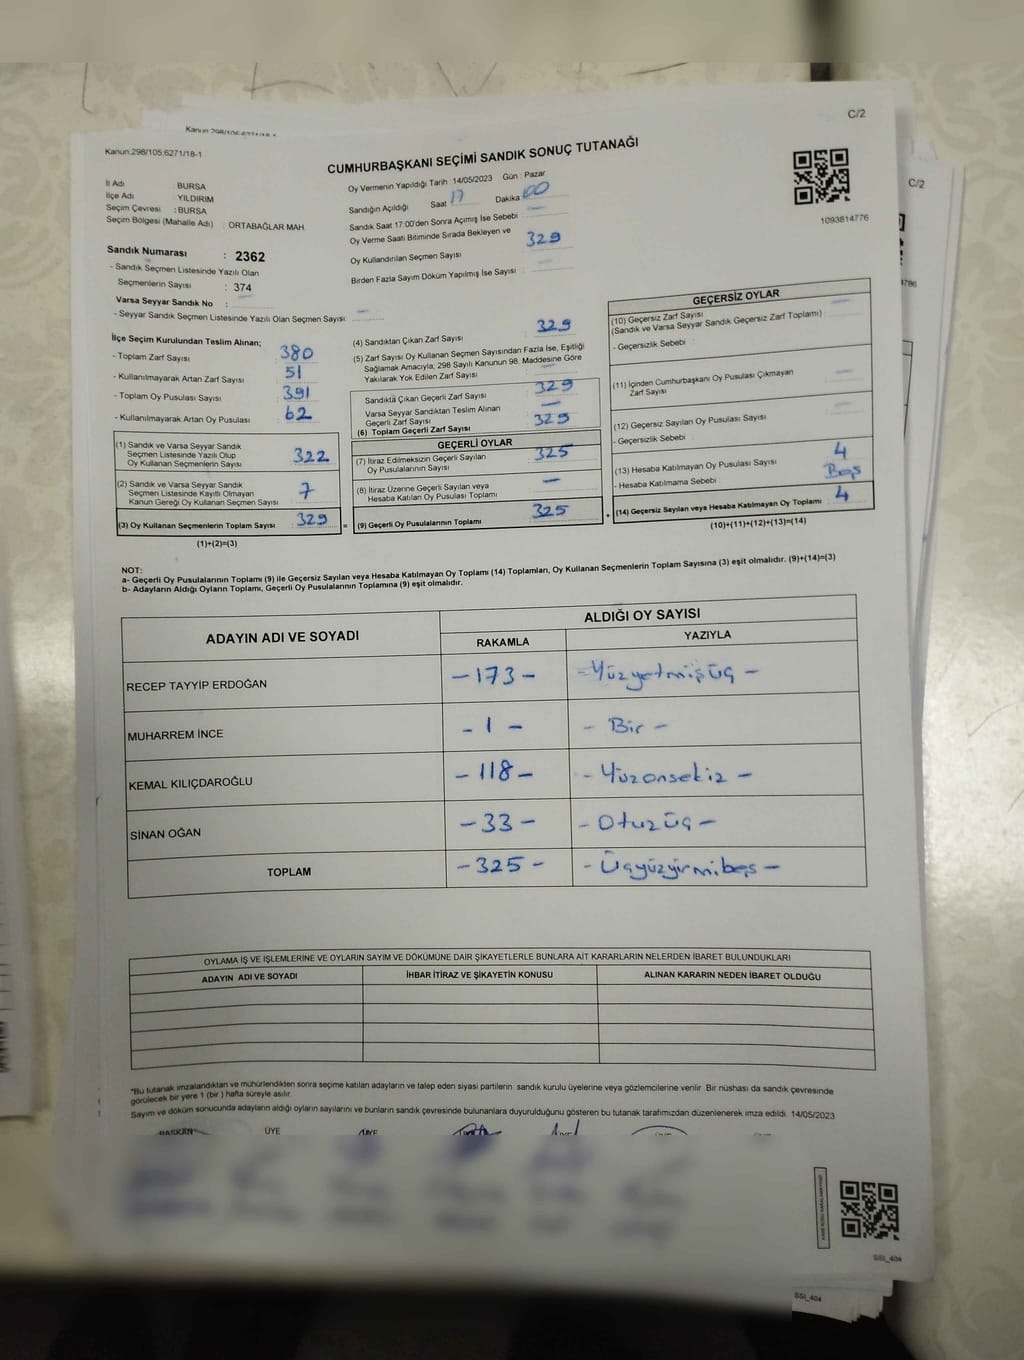 C/2
Kanun:298/105,6271/18-1
CUMHURBAŞKANI SEÇİMİ SANDIK SONUÇ TUTANAĞI
İl Adı : BURSA
İlçe Adı : YILDIRIM
Seçim Çevresi : BURSA
Seçim Bölgesi (Mahalle Adı) : ORTABAĞLAR MAH.
Sandık Numarası : 2362
- Sandık Seçmen Listesinde Yazılı Olan
Seçmenlerin Sayısı : 374
Varsa Seyyar Sandık No :
- Seyyar Sandık Seçmen Listesinde Yazılı Olan Seçmen Sayısı: -
Oy Vermenin Yapıldığı Tarih : 14/05/2023 Gün : Pazar
Sandığın Açıldığı Saat 17 Dakika 00
Sandık Saat 17:00'den Sonra Açımış İse Sebebi : -
Oy Verme Saati Bitiminde Sırada Bekleyen ve
Oy Kullandırılan Seçmen Sayısı : 329
Birden Fazla Sayım Döküm Yapılmış İse Sayısı : -
1093814776
C/2
İlçe Seçim Kurulundan Teslim Alınan;
- Toplam Zarf Sayısı : 380
- Kullanılmayarak Artan Zarf Sayısı : 51
- Toplam Oy Pusulası Sayısı : 391
- Kullanılmayarak Artan Oy Pusulası : 62
(1) Sandık ve Varsa Seyyar Sandık
Seçmen Listesinde Yazılı Olup
Oy Kullanan Seçmenlerin Sayısı : 322
(2) Sandık ve Varsa Seyyar Sandık
Seçmen Listesinde Kayıtlı Olmayan
Kanun Gereği Oy Kullanan Seçmen Sayısı : 7
(3) Oy Kullanan Seçmenlerin Toplam Sayısı : 329
(1)+(2)=(3)
(4) Sandıktan Çıkan Zarf Sayısı : 329
(5) Zarf Sayısı Oy Kullanan Seçmen Sayısından Fazla İse, Eşitliği
Sağlamak Amacıyla; 298 Sayılı Kanunun 98. Maddesine Göre
Yakılarak Yok Edilen Zarf Sayısı : -
Sandıkta Çıkan Geçerli Zarf Sayısı : 329
Varsa Seyyar Sandıktan Teslim Alınan
Geçerli Zarf Sayısı : -
(6) Toplam Geçerli Zarf Sayısı : 329
GEÇERLİ OYLAR
(7) İtiraz Edilmeksizin Geçerli Sayılan
Oy Pusulalarının Sayısı : 325
(8) İtiraz Üzerine Geçerli Sayılan veya
Hesaba Katılan Oy Pusulası Toplamı : -
= (9) Geçerli Oy Pusulalarının Toplamı : 325
GEÇERSİZ OYLAR
(10) Geçersiz Zarf Sayısı : -
(Sandık ve Varsa Seyyar Sandık Geçersiz Zarf Toplamı)
- Geçersizlik Sebebi :
(11) İçinden Cumhurbaşkanı Oy Pusulası Çıkmayan
Zarf Sayısı : -
(12) Geçersiz Sayılan Oy Pusulası Sayısı : -
- Geçersizlik Sebebi :
(13) Hesaba Katılmayan Oy Pusulası Sayısı : 4
- Hesaba Katılmama Sebebi : Boş
+ (14) Geçersiz Sayılan veya Hesaba Katılmayan Oy Toplamı : 4
(10)+(11)+(12)+(13)=(14)
NOT:
a- Geçerli Oy Pusulalarının Toplamı (9) ile Geçersiz Sayılan veya Hesaba Katılmayan Oy Toplamı (14) Toplamları, Oy Kullanan Seçmenlerin Toplam Sayısına (3) eşit olmalıdır. (9)+(14)=(3)
b- Adayların Aldığı Oyların Toplamı, Geçerli Oy Pusulalarının Toplamına (9) eşit olmalıdır.
ADAYIN ADI VE SOYADI
ALDIĞI OY SAYISI
RAKAMLA YAZIYLA
RECEP TAYYİP ERDOĞAN -173- -Yüzyetmişüç-
MUHARREM İNCE -1- -Bir-
KEMAL KILIÇDAROĞLU -118- -Yüzonsekiz-
SİNAN OĞAN -33- -Otuzüç-
TOPLAM -325- -Üçyüzyirmibeş-
OYLAMA İŞ VE İŞLEMLERİNE VE OYLARIN SAYIM VE DÖKÜMÜNE DAİR ŞİKAYETLERLE BUNLARA AİT KARARLARIN NELERDEN İBARET BULUNDUKLARI
ADAYIN ADI VE SOYADI İHBAR İTİRAZ VE ŞİKAYETİN KONUSU ALINAN KARARIN NEDEN İBARET OLDUĞU
*Bu tutanak imzalandıktan ve mühürlendikten sonra seçime katılan adayların ve talep eden siyasi partilerin sandık kurulu üyelerine veya gözlemcilerine verilir. Bir nüshası da sandık çevresinde
görülecek bir yere 1 (bir) hafta süreyle asılır.
Sayım ve döküm sonucunda adayların aldığı oyların sayılarını ve bunların sandık çevresinde bulunanlara duyurulduğunu gösteren bu tutanak tarafımızdan düzenlenerek imza edildi. 14/05/2023
BAŞKAN ÜYE ÜYE
SSI_404
SSI_404